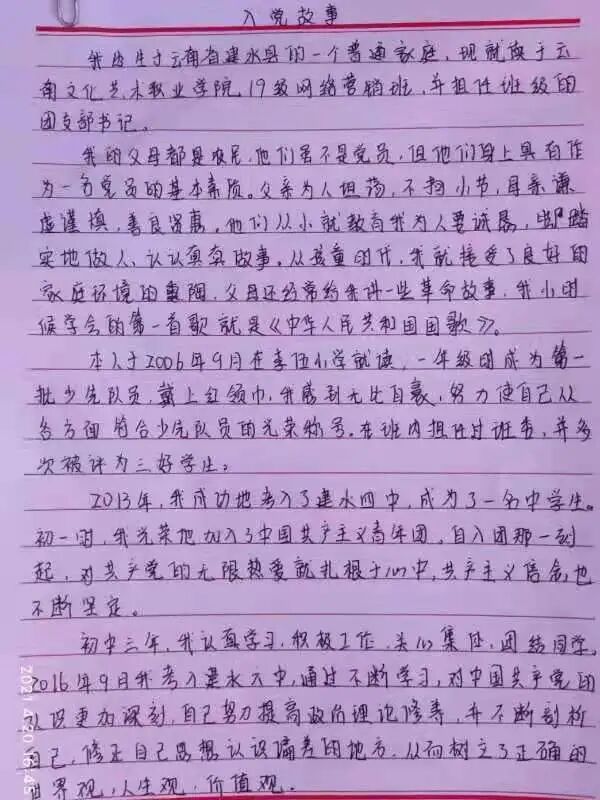 入党故事
我出生于云南省建水县的一个普通家庭，现就读于云
南文化艺术职业学院19级网络营销班，并担任班级的
团支部书记。
我的父母都是农民，他们虽不是党员，但他们身上具有作
为一名党员的基本素质。父亲为人坦荡，不拘小节，母亲谦
虚谨慎，善良贤惠，他们从小就教育我为人要诚恳，脚踏
实地做人、认认真真做事。从孩童时代，我就接受了良好的
家庭环境的熏陶，父母还经常给我讲一些革命故事，我小时
候学会的第一首歌就是《中华人民共和国国歌》。
本人于2006年9月在李伍小学就读，一年级时成为第一
批少先队员，戴上红领巾，我感到无比自豪，努力使自己从
各方面符合少先队员的光荣称号。在班内担任过班委，并多
次被评为三好学生；
2013年，我成功地考入了建水四中，成为了一名中学生。
初一时，我光荣地加入了中国共产主义青年团，自入团那一刻
起，对共产党的无限热爱就扎根于心中，共产主义信念也
不断坚定。
初中三年，我认真学习，积极工作，关心集体，团结同学，
2016年9月我考入建水六中，通过不断学习，对中国共产党的
认识更加深刻，自己努力提高政治理论修养，并不断剖析
自己，修正自己思想认识偏差的地方，从而树立了正确的
世界观，人生观，价值观。